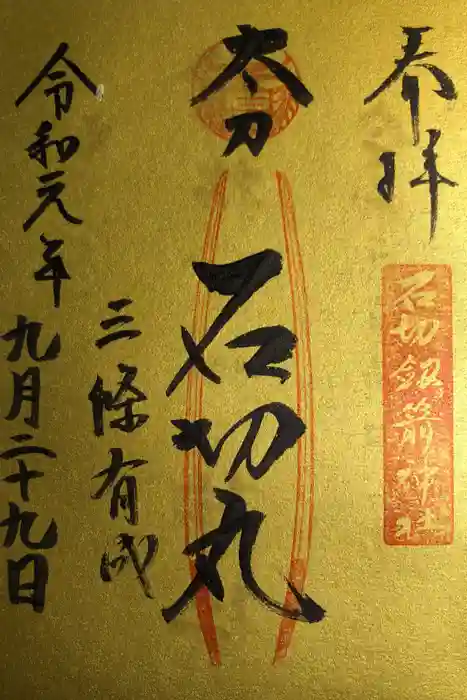 奉拝
石切劔箭神社
太刀
石切丸
三條有成
令和元年
九月二十九日